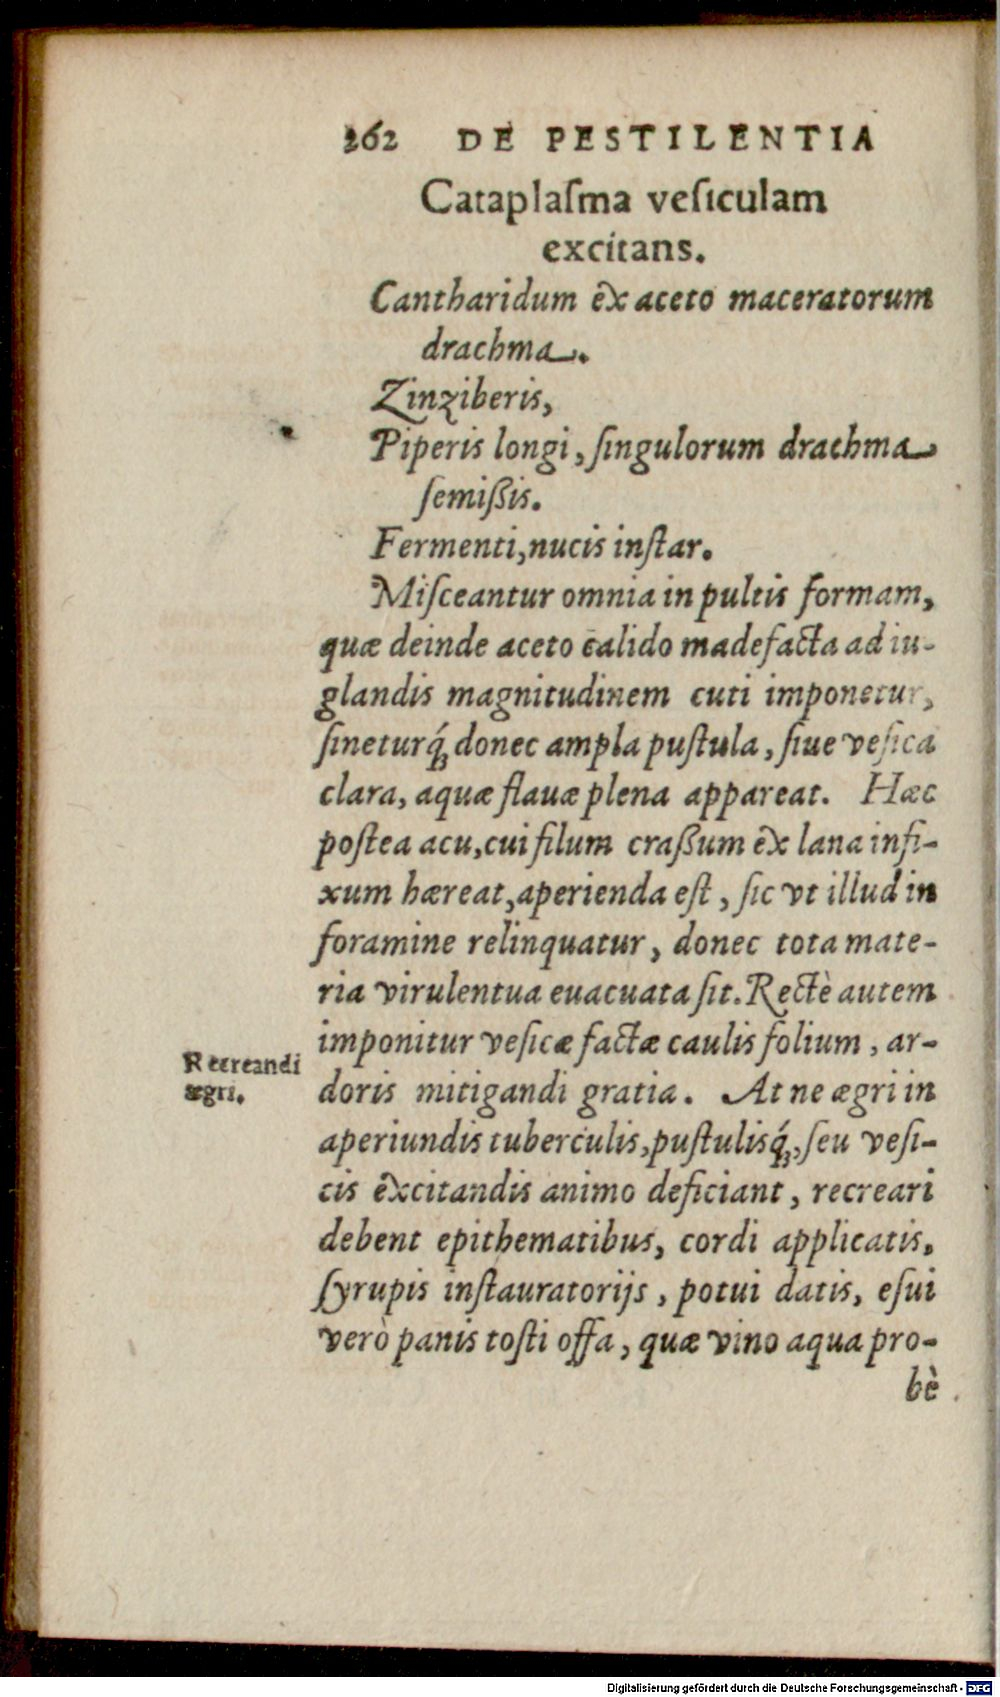 262 DE PESTILENTIA
Cataplaſma veſiculam
excitans.
Cantharidum ex aceto maceratorum
drachma.
Zinziberis,
Piperis longi, ſingulorum drachma
ſemiſsis.
Fermenti, nucis inſtar.
Miſceantur omnia in pultis formam,
quæ deinde aceto calido madefacta ad iu-
glandis magnitudinem cuti imponetur,
ſineturq́; donec ampla puſtula, ſiue veſica
clara, aquæ flauæ plena appareat. Hæc
poſtea acu, cui filum craſsum ex lana infi-
xum hæreat, aperienda eſt, ſic vt illud in
foramine relinquatur, donec tota mate-
ria virulentua euacuata ſit. Rectè autem
imponitur veſicæ factæ caulis folium, ar-
Recreandi
ægri.
doris mitigandi gratia. At ne ægri in
aperiundis tuberculis, puſtulisq́;, ſeu veſi-
cis excitandis animo deficiant, recreari
debent epithematibus, cordi applicatis,
ſyrupis inſtauratorijs, potui datis, eſui
verò panis toſti offa, quæ vino aqua pro-
bè
Digitalisierung gefördert durch die Deutsche Forschungsgemeinschaft - DFG